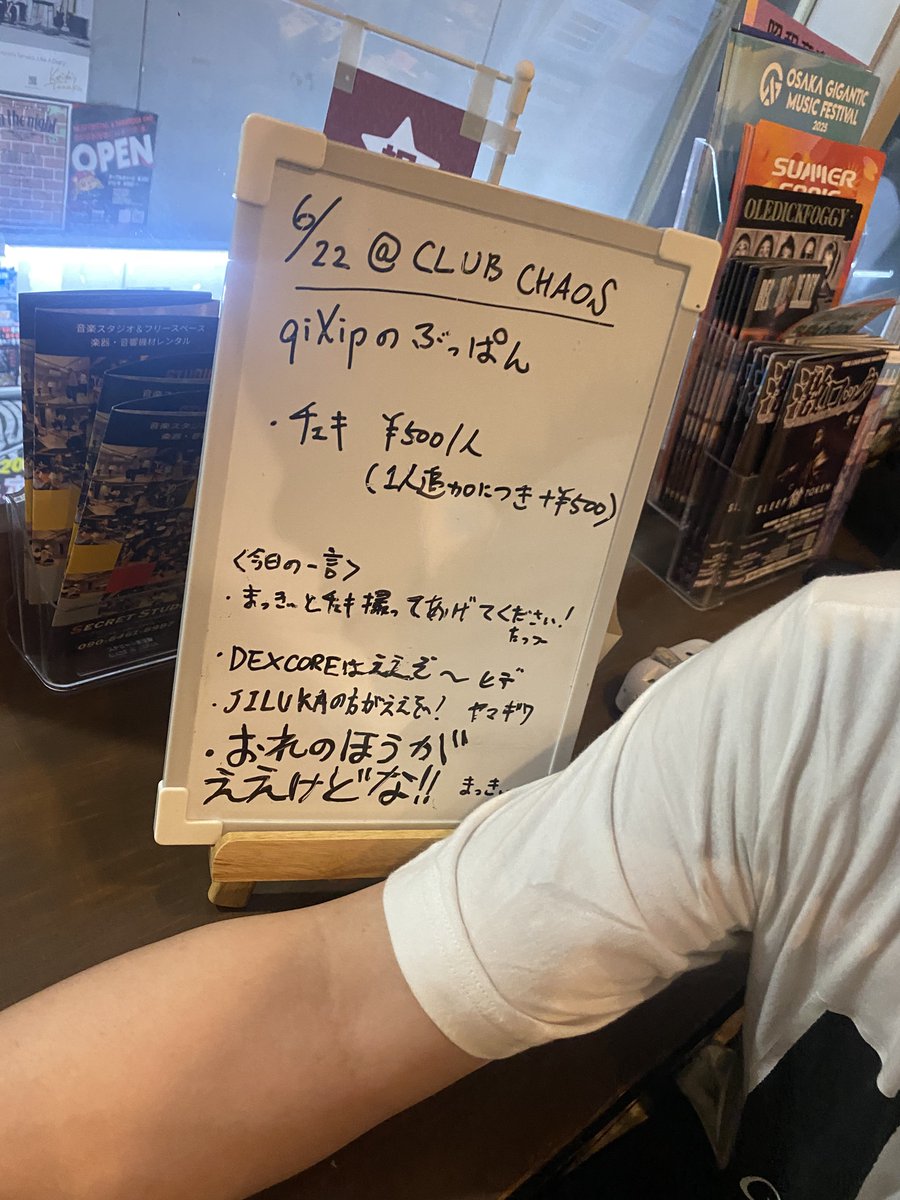 6/22 @ CLUB CHAOS
qiXipのぶっぱん
・チェキ ¥500/人
(1人追加につき+¥500)
<今日の一言>
・まっきぃとチェキ撮ってあげてください!
たつや
・DEXCOREはええぞ〜 ヒデ
・JILUKAの方がええぞ! ヤマギワ
・おれのほうが
ええけどな!! まっきぃ
OPEN
音楽スタジオ&フリースペース
楽器・音響機材レンタル
SECRET STUDIO
OSAKA GIGANTIC
MUSIC FESTIVAL
2025
SUMMER
SONIC
OLEDICKFOGGY
SLEEP TOKEN